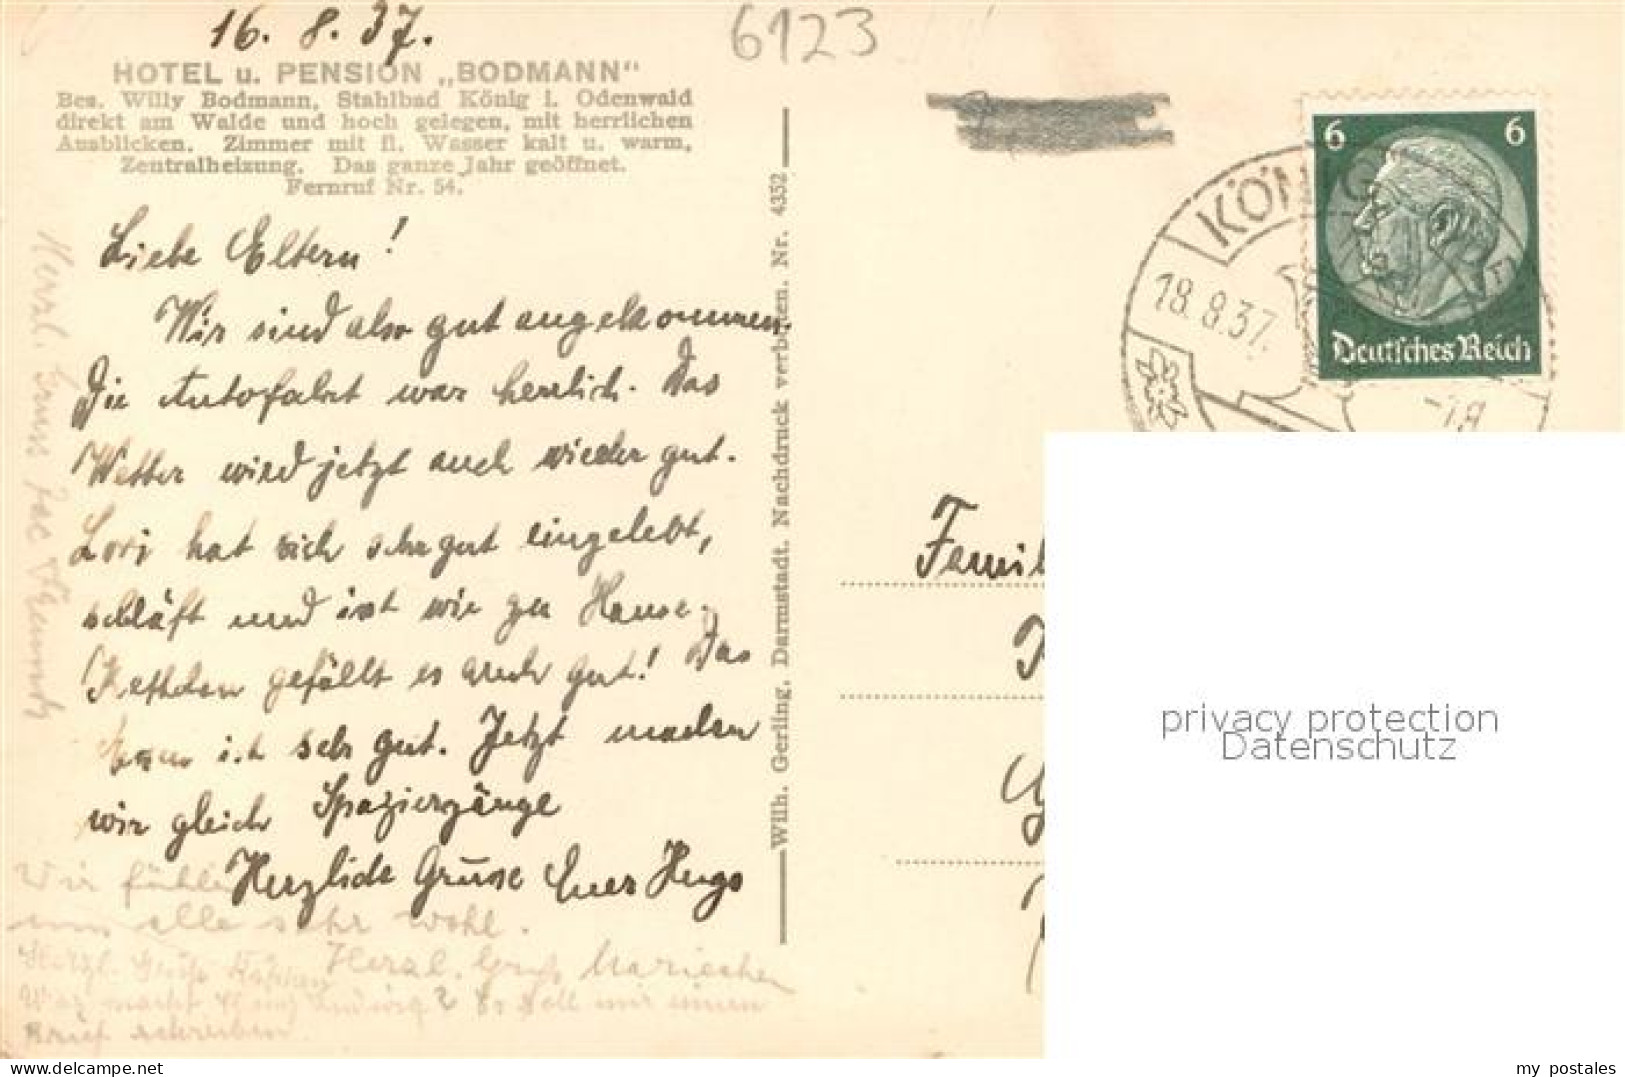 16. 8. 37.
6123
HOTEL u. PENSION „BODMANN“
Bes. Willy Bodmann, Stahlbad König i. Odenwald
direkt am Walde und hoch gelegen, mit herrlichen
Ausblicken. Zimmer mit fl. Wasser kalt u. warm,
Zentralheizung. Das ganze Jahr geöffnet.
Fernruf Nr. 54.
Liebe Eltern!
Wir sind also gut angekommen.
Die Autofahrt war herrlich. Das
Wetter wird jetzt auch wieder gut.
Lori hat sich sehr gut eingelebt,
schläft und isst wie zu Hause.
gefällt es auch gut! Das
ist sehr gut. Jetzt machen
wir gleich Spaziergänge
Herzliche Grüsse Euer Hugo
Wir fühlen
uns alle sehr wohl.
Herzl. Grüße
Herzl. Gruß Mariechen
Was macht ? Er soll mir einen
Brief schreiben.
Herzl.
Wilh. Gerling, Darmstadt. Nachdruck verboten. Nr. 4352
6 6
Deutsches Reich
KÖNIG
18.8.37.
Famil
privacy protection
Datenschutz
www.delcampe.net
my_postales